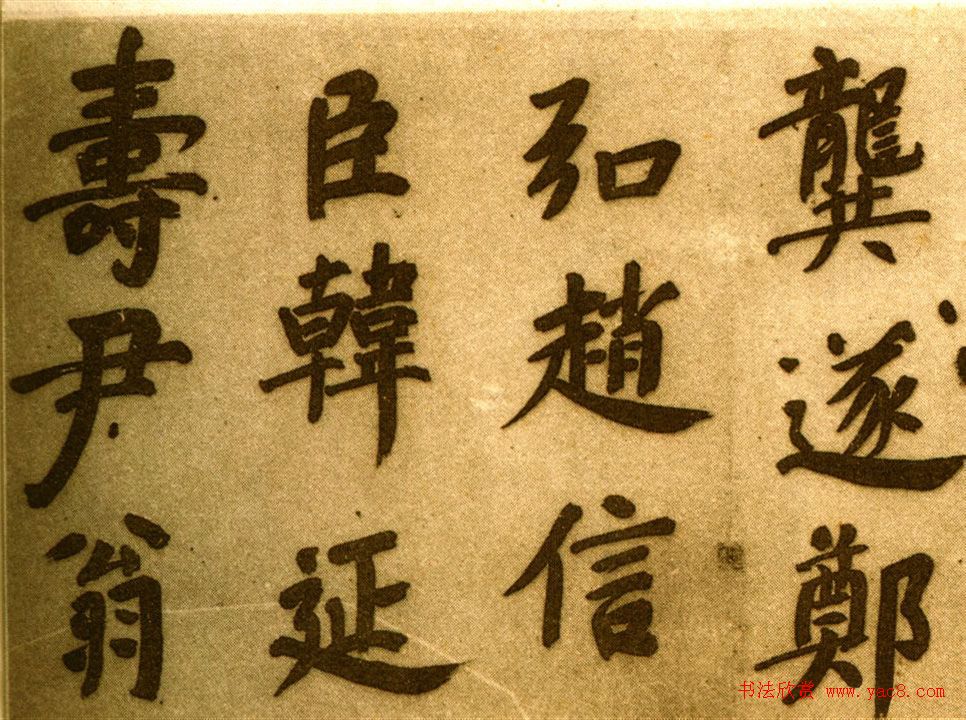 龔遂鄭
弘趙信
臣韓延
壽尹翁
书法欣赏 www.yac8.com